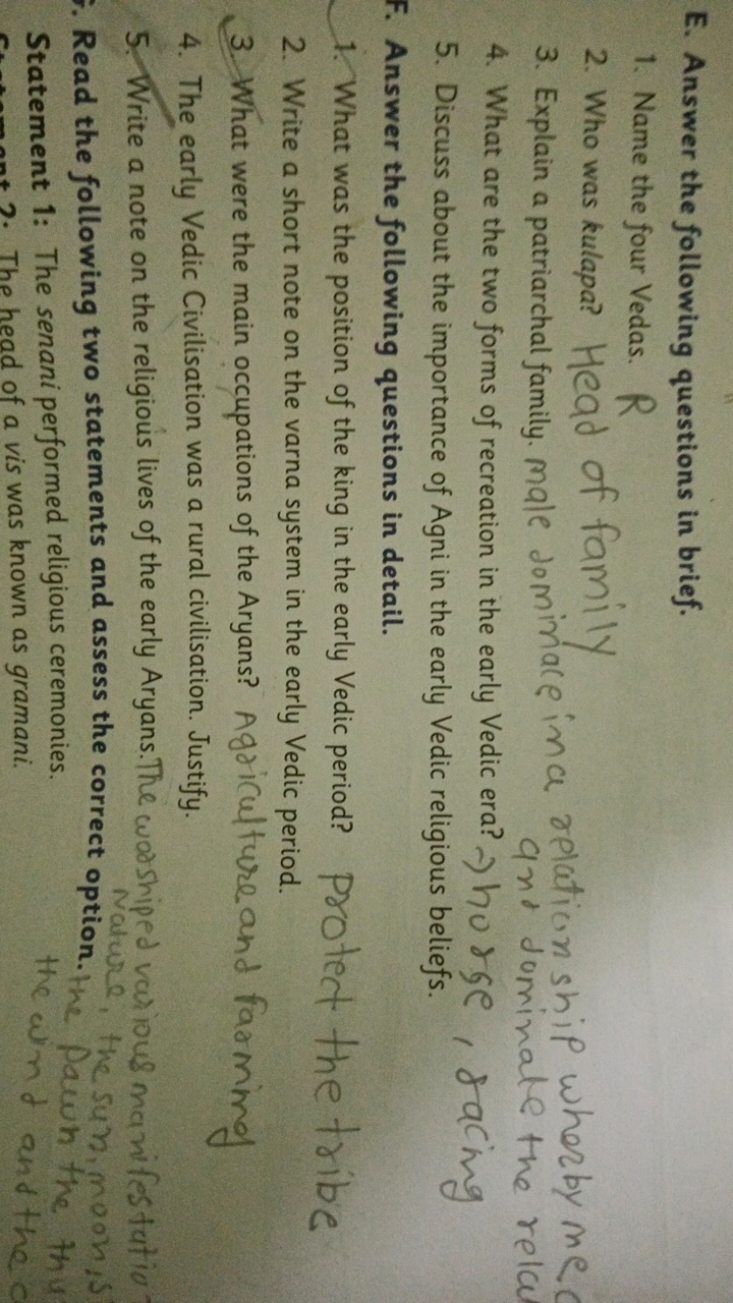 E. Answer the following questions in brief.
1. Name the four Vedas. R
2. Who was kulapa? Head of family
3. Explain a patriarchal family. male dominace in a relation ship wherby me
and dominate the rela
4. What are the two forms of recreation in the early Vedic era? → horse, racing
5. Discuss about the importance of Agni in the early Vedic religious beliefs.
F. Answer the following questions in detail.
1. What was the position of the king in the early Vedic period? protect the tribe
2. Write a short note on the varna system in the early Vedic period.
3. What were the main occupations of the Aryans? Agriculture and farming
4. The early Vedic Civilisation was a rural civilisation. Justify.
5. Write a note on the religious lives of the early Aryans. The worshiped various manifestatio
Nature, the sun, moon,
. Read the following two statements and assess the correct option. the Dawn the thu
Statement 1: The senani performed religious ceremonies. the wind and the
Statement 2: The head of a vis was known as gramani.